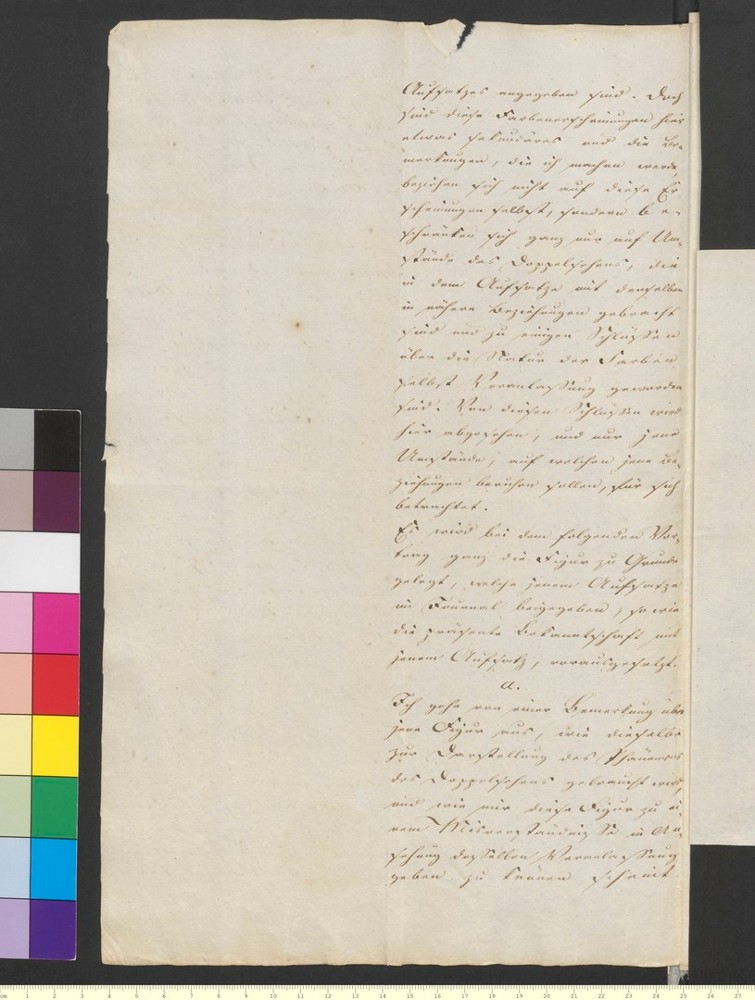 Aufsatzes angegeben sind. Doch
sind diese Farbenerscheinungen hier
etwas sekundäres und die Be-
merkungen, die ich machen werde,
beziehen sich nicht auf diese Er
scheinungen selbst, sondern be-
schränken sich ganz nur auf Um-
stände des Doppelsehens, die
in dem Aufsatze mit denselben
in nähere Beziehungen gebracht
sind und zu einigen Schlüssen
über die Natur der Farben
selbst Veranlassung geworden
sind. Von diesen Schlüssen wird
hier abgesehen, und nur jene
Umstände, auf welchen jene Be-
ziehungen beruhen sollen, für sich
betrachtet.
Es wird bei dem folgenden Vor-
trag ganz die Figur zu Grunde
gelegt, welche jenem Aufsatze
im Journal beigegeben, so wie
die präsente Bekanntschaft mit
jenem Aufsatz, vorausgesetzt.
a.
Ich gehe von einer Bemerkung über
jene Figur aus, wie dieselbe
zur Darstellung des Phänomens
des Doppelsehens gebraucht wird,
und wie mir diese Figur zu ei-
nem Misverständnisse in An-
sehung desselben Veranlassung
geben zu können scheint